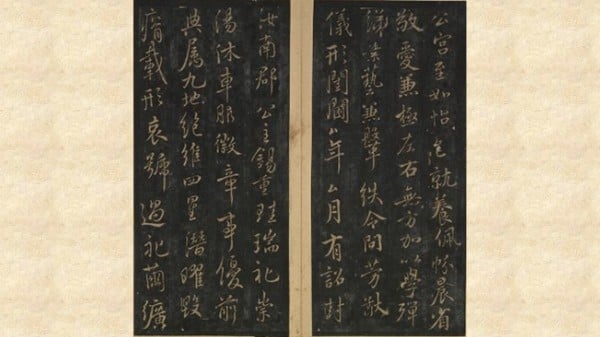 公宮至如怡色就養佩帉晨省
敬愛兼極左右無方加以學殫
綈素藝兼鞶紩令問芳猷
儀形閨閫厶年厶月有詔封
汝南郡公主錫重珪瑞礼崇
湯沐車服徽章事優前
典屬九地絕維四星潛曜毀
瘠載形哀號過礼繭纊